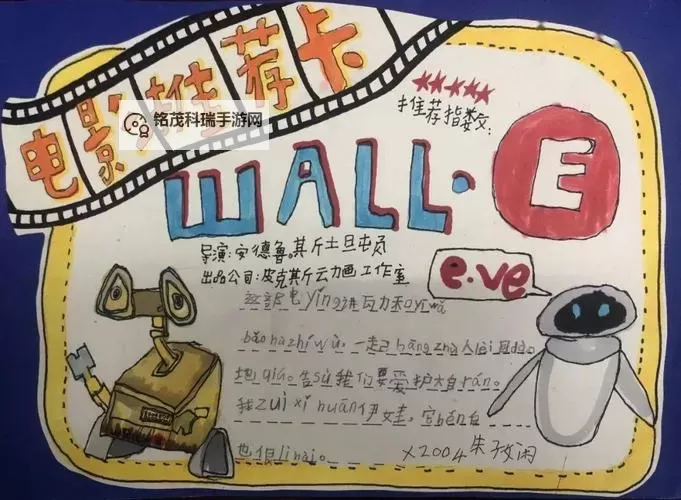 电影推荐卡
铭茂科瑞手游网
★★★★★
推荐指数:
WALL·E
导演:安德鲁。其斤土旦屯员
出品公司:皮克其斤云力画工作室
e.ve
这部电yǐng讲瓦力和yī wá
bǎo hù zhí wù。一起bāng zhù人lèi回dào
地qiú。告sù我们要爱护大自rán。
我zuì xǐ huān伊娃,它běn
也很lì hài。
×2004